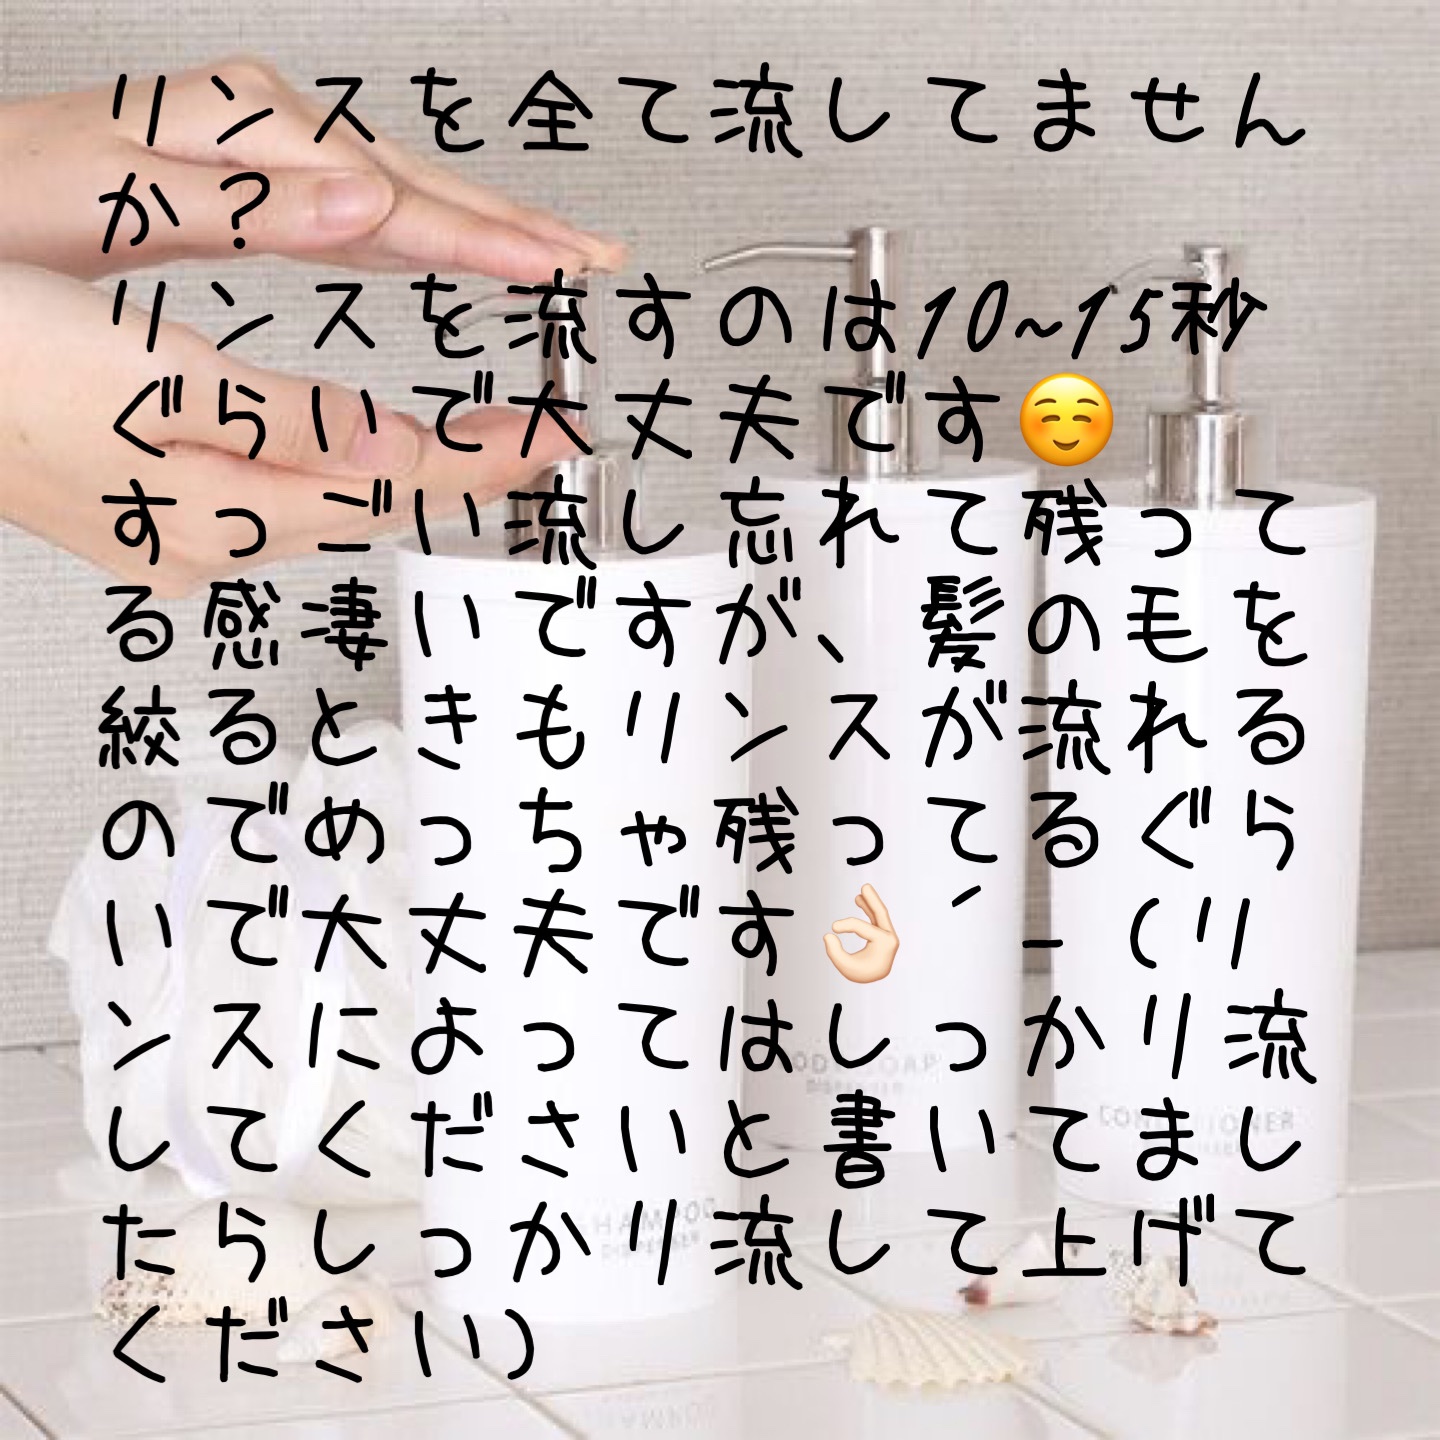 リンスを全て流してません
か？
リンスを流すのは10~15秒
ぐらいで大丈夫です☺️
すっごい流し忘れて残って
る感凄いですが、髪の毛を
絞るときもリンスが流れる
のでめっちゃ残ってるぐら
いで大丈夫です👌🏻´-（リ
ンスによってはしっかり流
してくださいと書いてまし
たらしっかり流して上げて
ください）
BODY SOAP
DISPENSER
CONDITIONER
DISPENSER
SHAMPOO
DISPENSER